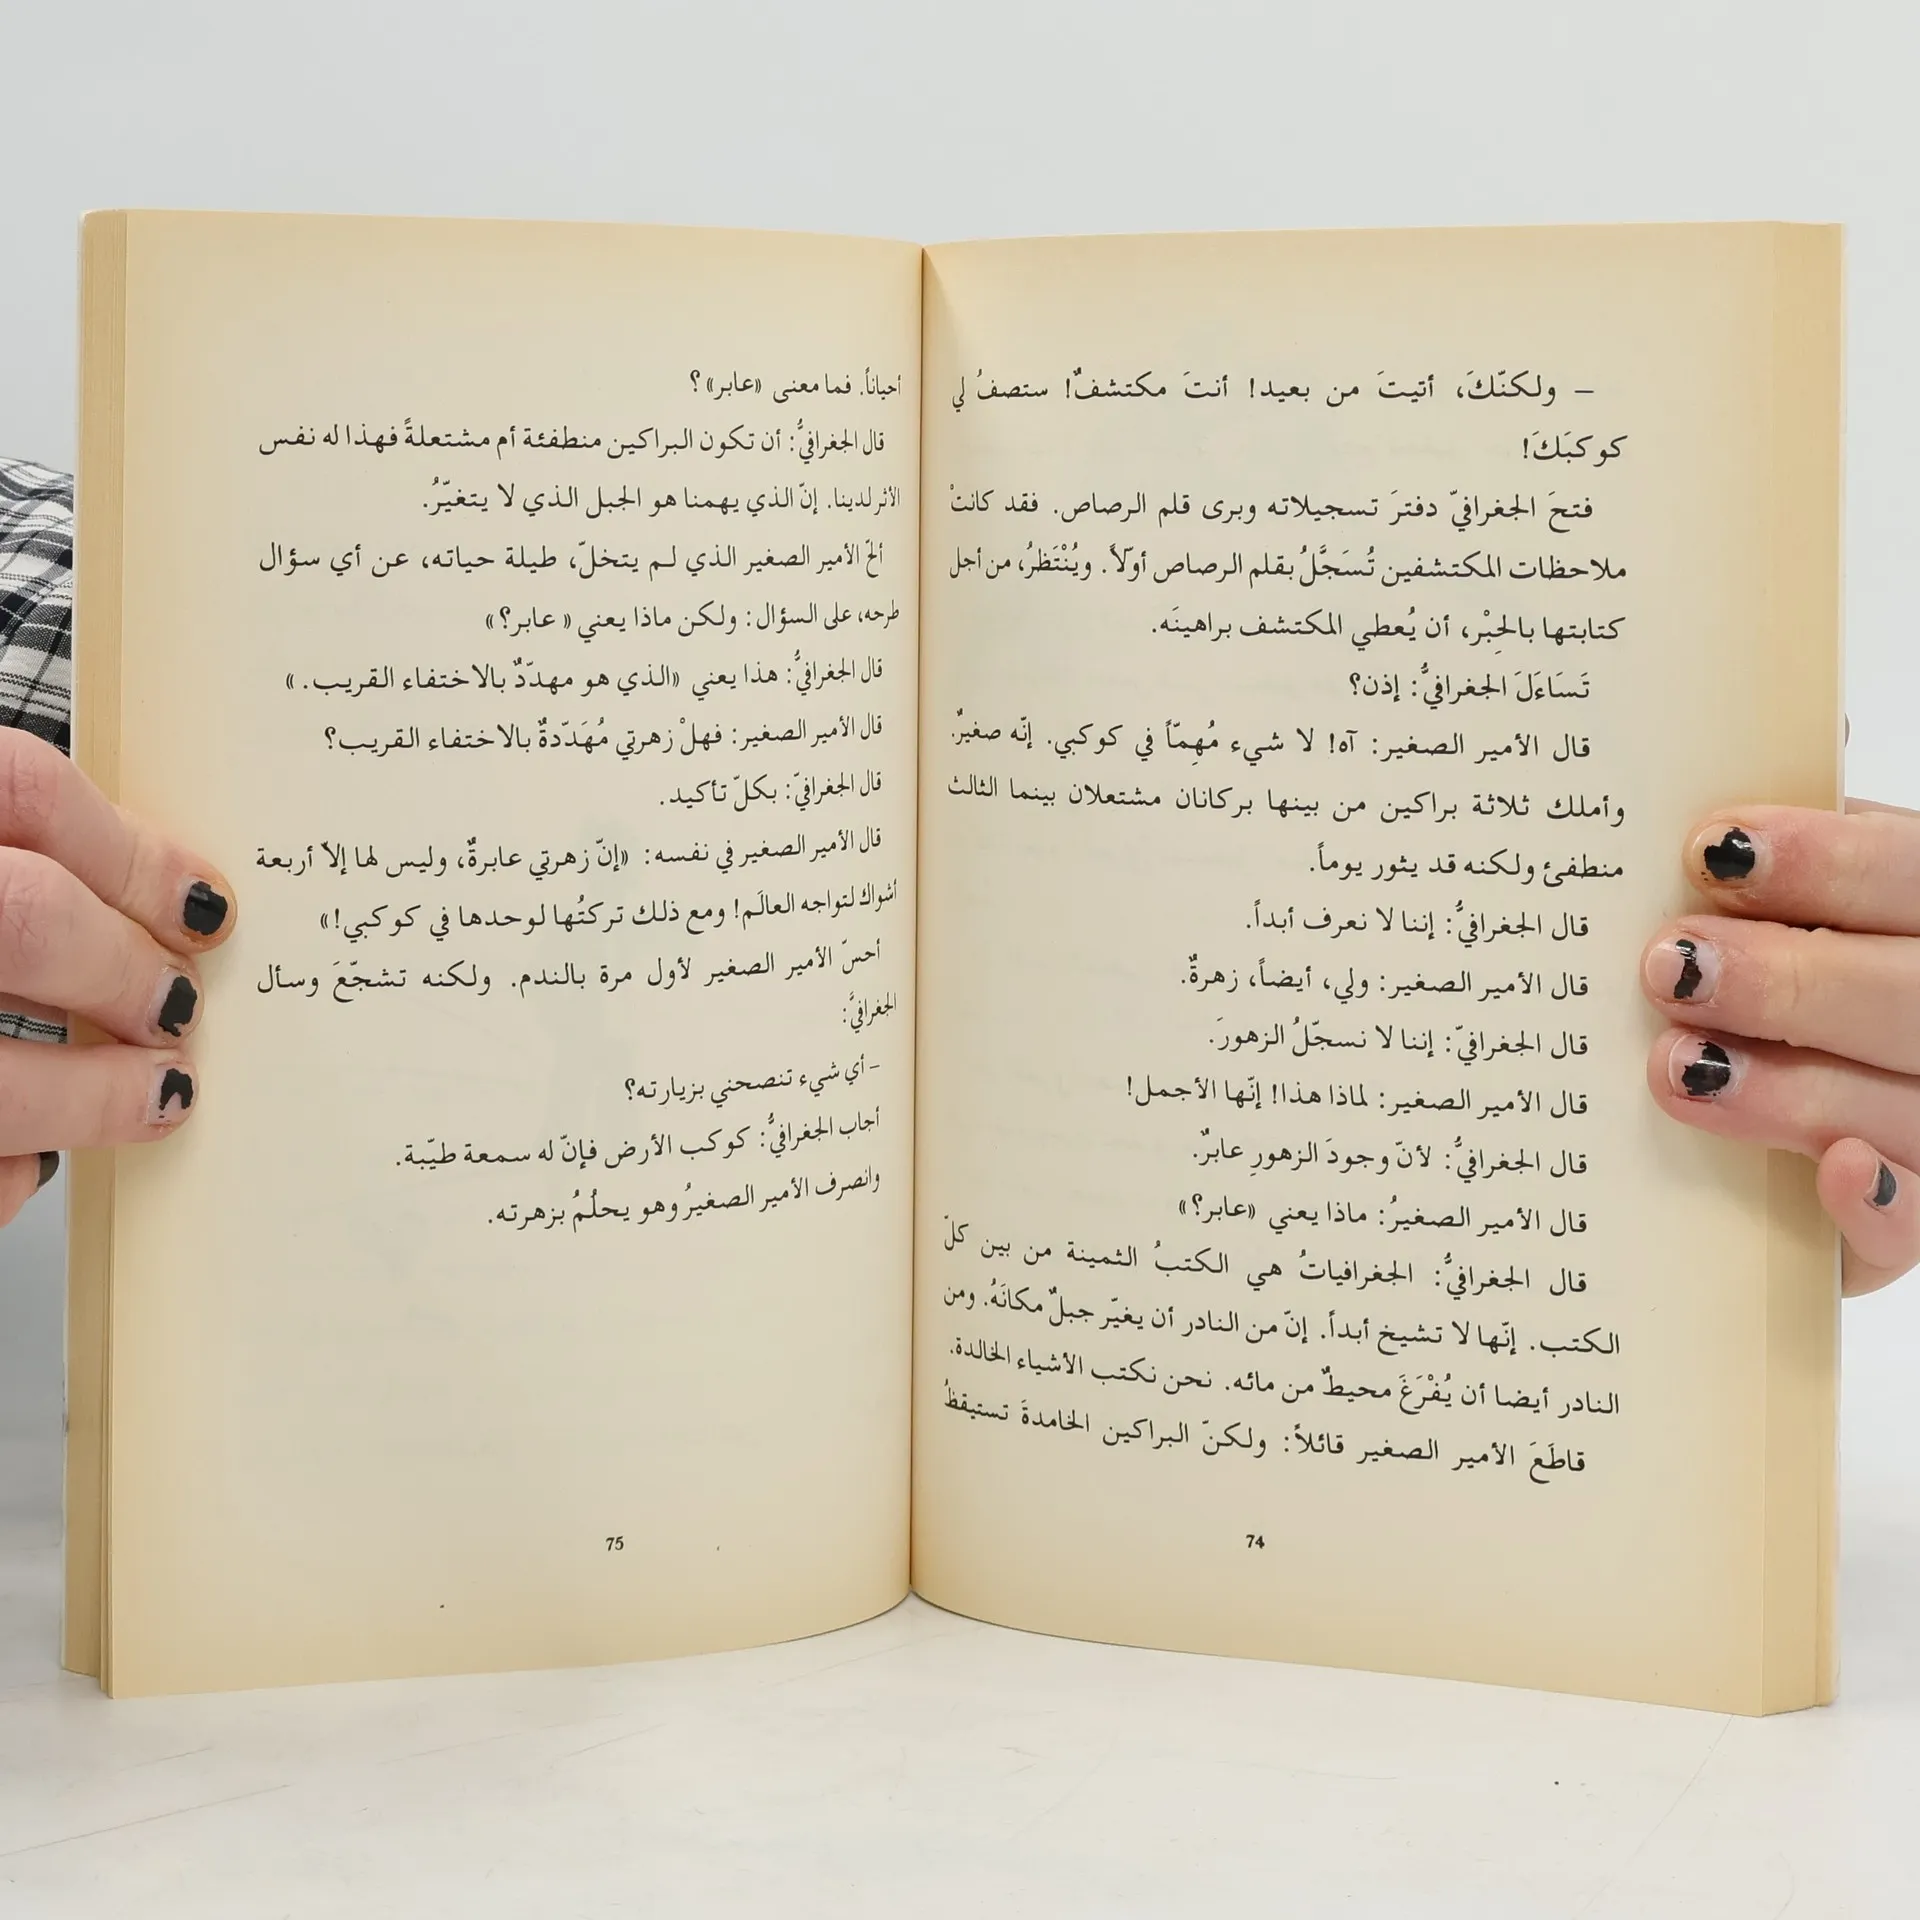 – ولكنّكَ، أتيتَ من بعيد! أنتَ مكتشفٌ! ستصفُ لي
كوكبَكَ!
فتحَ الجغرافيّ دفترَ تسجيلاته وبرى قلم الرصاص. فقد كانتْ
ملاحظات المكتشفين تُسَجَّلُ بقلم الرصاص أوّلاً. ويُنْتَظرُ، من أجل
كتابتها بالحِبْر، أن يُعطي المكتشف براهينَه.
تَسَاءَلَ الجغرافيُّ: إذن؟
قال الأمير الصغير: آه! لا شيء مُهِمّاً في كوكبي. إنّه صغيرٌ.
وأملك ثلاثة براكين من بينها بركانان مشتعلان بينما الثالث
منطفئ ولكنه قد يثور يوماً.
قال الجغرافيُّ: إننا لا نعرف أبداً.
قال الأمير الصغير: ولي، أيضاً، زهرةٌ.
قال الجغرافيّ: إننا لا نسجّلُ الزهورَ.
قال الأمير الصغير: لماذا هذا! إنّها الأجمل!
قال الجغرافيُّ: لأنّ وجودَ الزهورِ عابرٌ.
قال الأمير الصغيرُ: ماذا يعني «عابر؟»
قال الجغرافيُّ: الجغرافياتُ هي الكتبُ الثمينة من بين كلّ
الكتب. إنّها لا تشيخ أبداً. إنّ من النادر أن يغيّر جبلٌ مكانَهُ. ومن
النادر أيضا أن يُفْرَغَ محيطٌ من مائه. نحن نكتب الأشياء الخالدة.
قاطَعَ الأمير الصغير قائلاً: ولكنّ البراكين الخامدةَ تستيقظُ
74
أحياناً. فما معنى «عابر»؟
قال الجغرافيُّ: أن تكون البراكين منطفئة أم مشتعلةً فهذا له نفس
الأثر لدينا. إنّ الذي يهمنا هو الجبل الذي لا يتغيّرُ.
ألحّ الأمير الصغير الذي لم يتخلّ، طيلة حياته، عن أي سؤال
طرحه، على السؤال: ولكن ماذا يعني «عابر؟»
قال الجغرافيُّ: هذا يعني «الذي هو مهدّدٌ بالاختفاء القريب.»
قال الأمير الصغير: فهلْ زهرتي مُهَدّدةٌ بالاختفاء القريب؟
قال الجغرافيّ: بكلّ تأكيد.
قال الأمير الصغير في نفسه: «إنّ زهرتي عابرةٌ، وليس لها إلاّ أربعة
أشواك لتواجه العالَم! ومع ذلك تركتُها لوحدها في كوكبي!»
أحسّ الأمير الصغير لأول مرة بالندم. ولكنه تشجّعَ وسأل
الجغرافيَّ:
– أي شيء تنصحني بزيارته؟
أجاب الجغرافيُّ: كوكب الأرض فإنّ له سمعة طيّبة.
وانصرف الأمير الصغيرُ وهو يحلُمُ بزهرته.
75